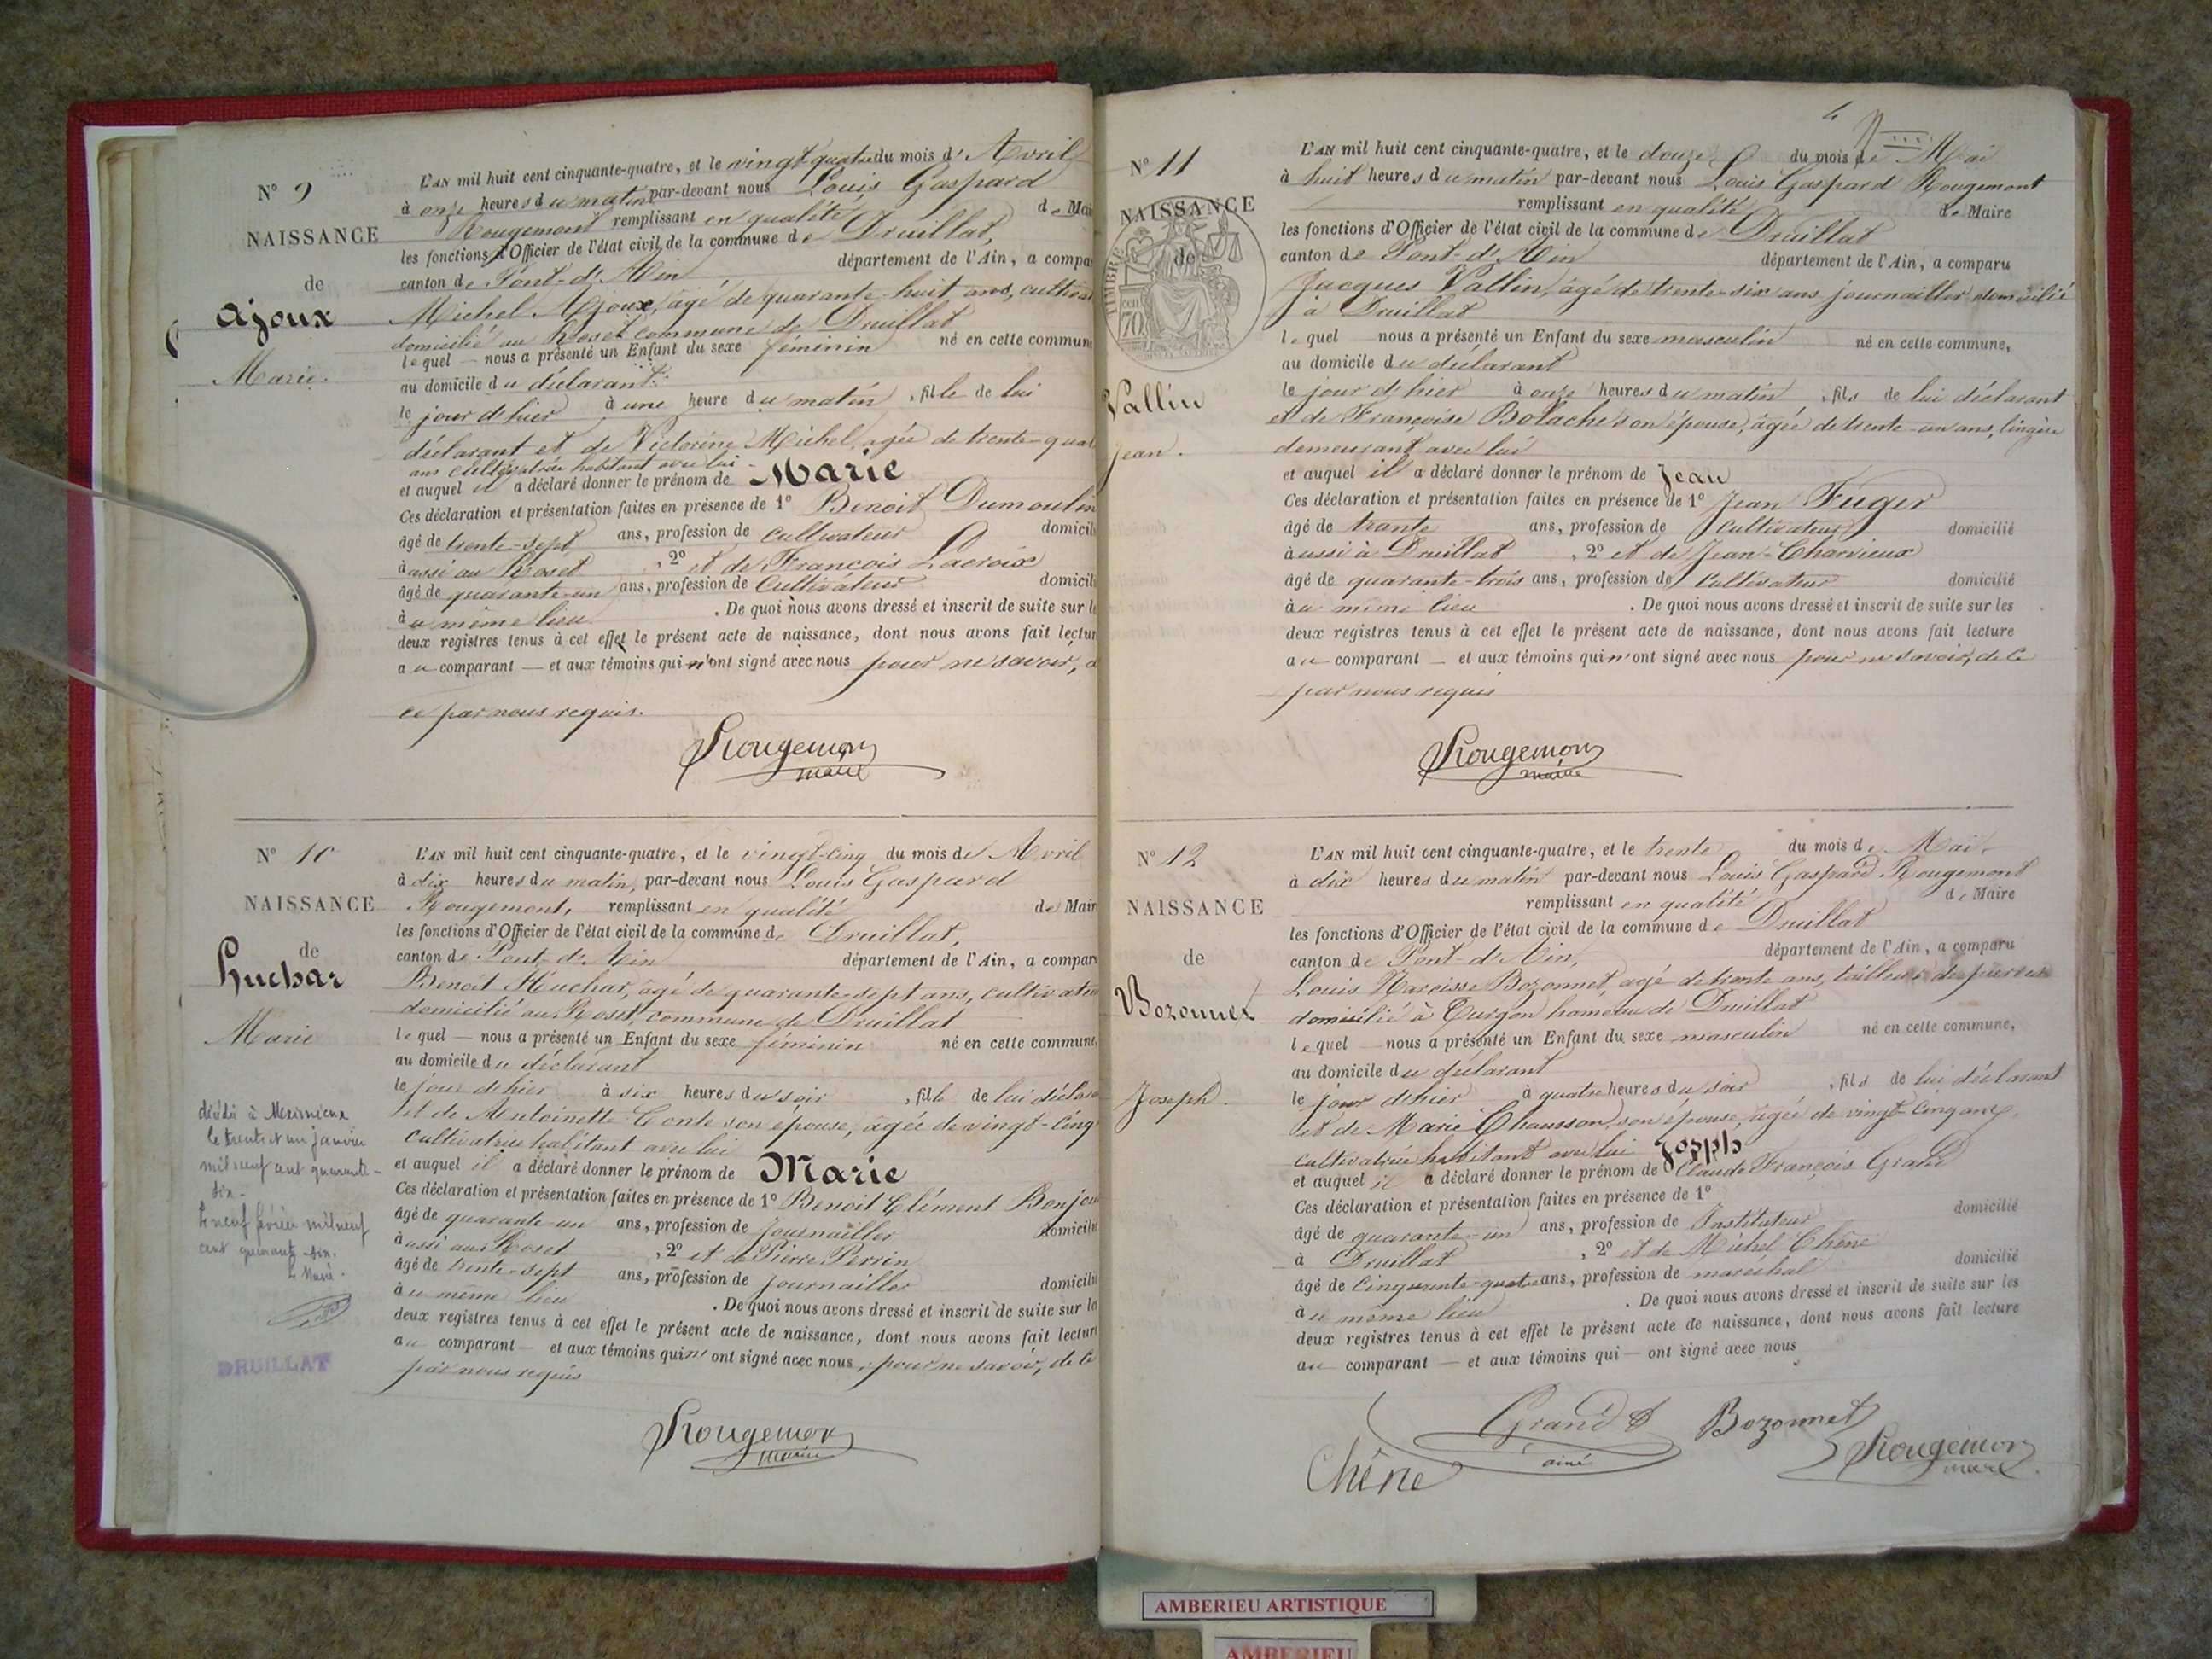 N° 9
NAISSANCE
de
Ajoux
Marie.
L'AN mil huit cent cinquante-quatre, et le vingt quatre du mois d' Avril
à onze heures du matin par-devant nous Louis Gaspard
Rougemont remplissant en qualité de Mai
les fonctions d'Officier de l'état civil de la commune de Druillat,
canton de Pont-d'Ain département de l'Ain, a compa
Michel Ajoux, âgé de quarante-huit ans, cultiva
domicilié au Roset commune de Druillat
lequel — nous a présenté un Enfant du sexe féminin né en cette commun
au domicile du déclarant
le jour d'hier à une heure du matin, fille de lui
déclarant et de Victorine Michel, agée de trente-quat
ans cultivatrice habitant avec lui
et auquel il a déclaré donner le prénom de Marie
Ces déclaration et présentation faites en présence de 1° Benoit Dumoulin
âgé de trente-sept ans, profession de cultivateur domicili
à assi au Roset, 2° et de François Lacroix
âgé de quarante-un ans, profession de Cultivateur domicili
au même lieu. De quoi nous avons dressé et inscrit de suite sur le
deux registres tenus à cet effet le présent acte de naissance, dont nous avons fait lectur
au comparant — et aux témoins qui n'ont signé avec nous pour ne savoir, d
ce par nous requis.
Rougemont
maire
N° 10
NAISSANCE
de
Huchar
Marie
décédé à Meximieux
le trente et un janvier
mil neuf cent quarante-
six.
Le neuf février mil neuf
cent quarante-six.
Le Maire.
DRUILLAT
L'AN mil huit cent cinquante-quatre, et le vingt-cinq du mois de Avril
à dix heures du matin, par-devant nous Louis Gaspard
Rougemont, remplissant en qualité de Mair
les fonctions d'Officier de l'état civil de la commune de Druillat,
canton de Pont-d'Ain département de l'Ain, a compar
Benoit Huchar, âgé de quarante-sept ans, cultivateu
domicilié au Roset, commune de Druillat
lequel — nous a présenté un Enfant du sexe féminin né en cette commune
au domicile du déclarant
le jour d'hier à six heures du soir, fille de lui déclara
et de Antoinette Conte son épouse, âgée de vingt-cinq
cultivatrice habitant avec lui
et auquel il a déclaré donner le prénom de Marie
Ces déclaration et présentation faites en présence de 1° Benoit Clément Bonjou
âgé de quarante-un ans, profession de journailler domicilié
à assi au Roset, 2° et de Pierre Perrin
âgé de trente-sept ans, profession de journailler domicilié
au même lieu. De quoi nous avons dressé et inscrit de suite sur le
deux registres tenus à cet effet le présent acte de naissance, dont nous avons fait lectur
au comparant — et aux témoins qui n'ont signé avec nous, pour ne savoir, de ce
par nous requis
Rougemont
maire
4
N° 11
NAISSANCE
de
TIMBRE
cen 70
Vallin
Jean.
L'AN mil huit cent cinquante-quatre, et le douze du mois de Mai
à huit heures du matin par-devant nous Louis Gaspard Rougemont
remplissant en qualité de Maire
les fonctions d'Officier de l'état civil de la commune de Druillat
canton de Pont-d'Ain département de l'Ain, a comparu
Jacques Vallin, âgé de trente-six ans journailler domicilié
à Druillat
lequel nous a présenté un Enfant du sexe masculin né en cette commune,
au domicile du déclarant
le jour d'hier à onze heures du matin, fils de lui déclarant
et de Françoise Bolache son épouse, âgée de trente-un ans, lingère
demeurant avec lui
et auquel il a déclaré donner le prénom de Jean
Ces déclaration et présentation faites en présence de 1° Jean Fuger
âgé de trante ans, profession de Cultivateur domicilié
à aussi à Druillat, 2° et de Jean-Charvieux
âgé de quarante-trois ans, profession de Cultivateur domicilié
au même lieu. De quoi nous avons dressé et inscrit de suite sur les
deux registres tenus à cet effet le présent acte de naissance, dont nous avons fait lecture
au comparant — et aux témoins qui n'ont signé avec nous pour ne savoir, de ce
par nous requis
Rougemont
maire
N° 12
NAISSANCE
de
Bozonnet
Joseph.
L'AN mil huit cent cinquante-quatre, et le trente du mois de Mai.
à dix heures du matin par-devant nous Louis Gaspard Rougemont
remplissant en qualité de Maire
les fonctions d'Officier de l'état civil de la commune de Druillat
canton de Pont-d'Ain, département de l'Ain, a comparu
Louis Narcisse Bozonnet, agé de trente ans, tailleur de pierres
domicilié à Turgon hameau de Druillat
lequel nous a présenté un Enfant du sexe masculin né en cette commune,
au domicile du déclarant
le jour d'hier à quatre heures du soir, fils de lui déclarant
et de Marie Chausson, son épouse, âgée de vingt-cinq ans,
cultivatrice habitant avec lui
et auquel il a déclaré donner le prénom de Joseph
Ces déclaration et présentation faites en présence de 1° Claude François Grand
âgé de quarante-un ans, profession de Instituteur domicilié
à Druillat, 2° et de Michel Chêne
âgé de cinquante-quatre ans, profession de maréchal domicilié
au même lieu. De quoi nous avons dressé et inscrit de suite sur les
deux registres tenus à cet effet le présent acte de naissance, dont nous avons fait lecture
au comparant — et aux témoins qui — ont signé avec nous
Grand Bozonnet
aîné
Chêne Rougemont
maire
AMBERIEU ARTISTIQUE
AMBERIEU